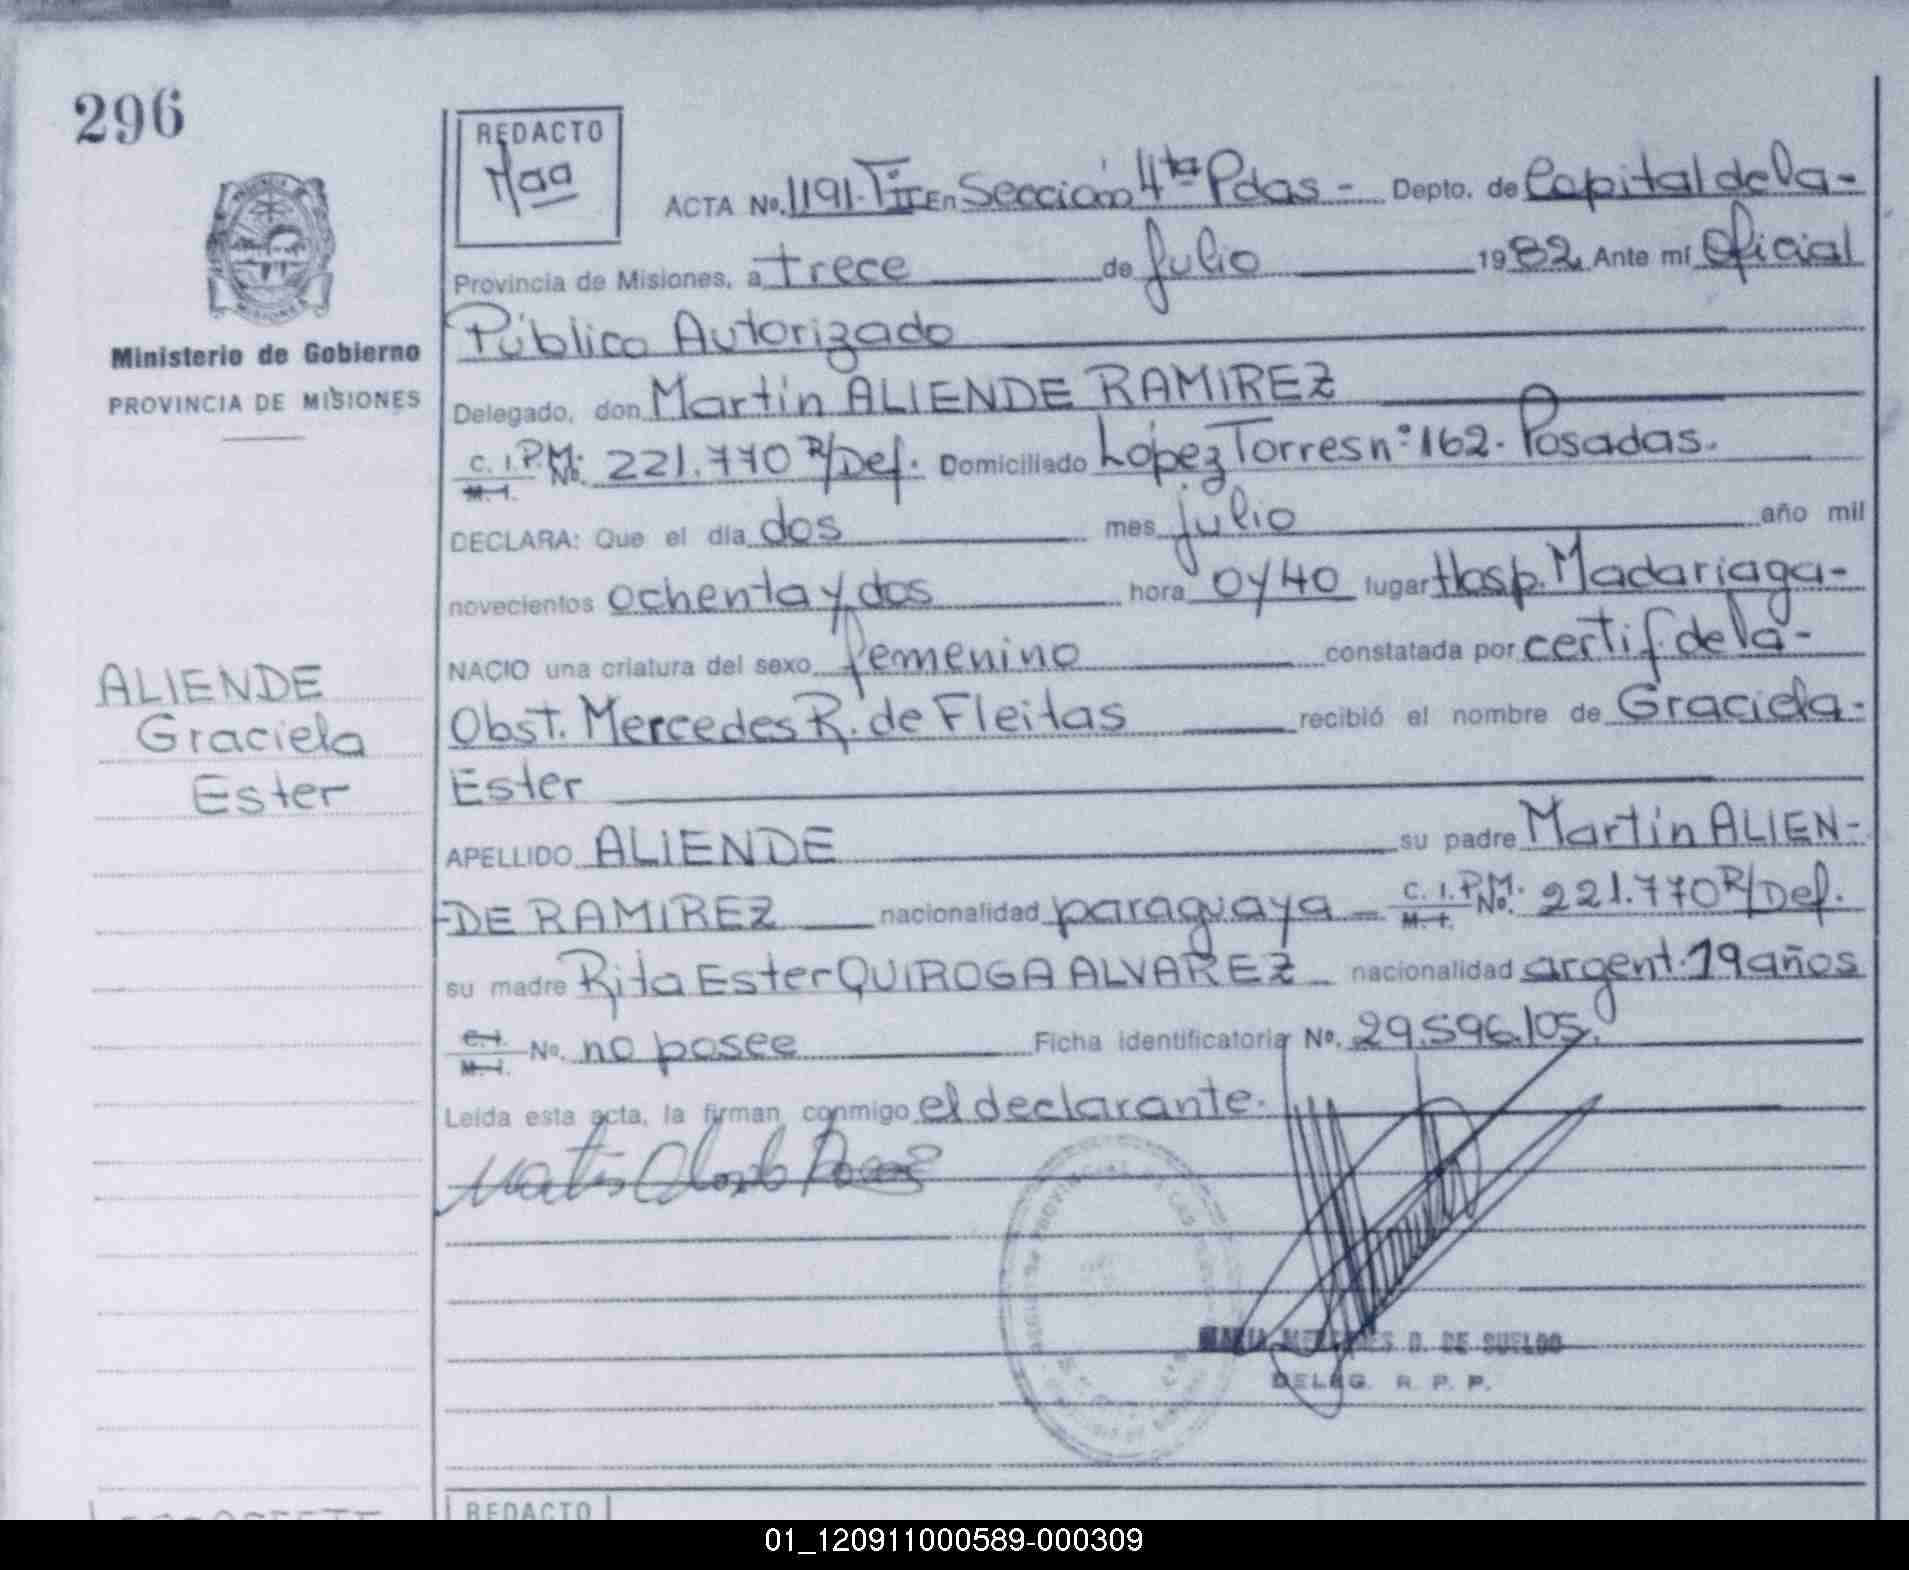 296
REDACTO
ACTA No. 1191. T. III En Sección 4ta Pdas - Depto. de Capital de la -
Provincia de Misiones, a trece de Julio 1982 Ante mí Oficial
Público Autorizado
Ministerio de Gobierno
PROVINCIA DE MISIONES
Delegado, don Martín ALIENDE RAMIREZ
C. I. P.M. No. 221.770 R/Def. Domiciliado López Torres n° 162. Posadas.
M. I.
DECLARA: Que el día dos mes julio año mil
novecientos ochenta y dos hora 0 y 40 lugar Hosp. Madariaga -
NACIO una criatura del sexo femenino constatada por certif. de la -
ALIENDE
Graciela
Ester
Obst. Mercedes R. de Fleitas recibió el nombre de Graciela -
Ester
APELLIDO ALIENDE su padre Martín ALIEN-
-DE RAMIREZ nacionalidad paraguaya C. I. P.M. No. 221.770 R/Def.
M. I.
su madre Rita Ester QUIROGA ALVAREZ nacionalidad argent. 19 años
C. I. No. no posee Ficha identificatoria No. 29.596.105.
M. I.
Leída esta acta, la firman conmigo el declarante.
MARIA MERCEDES D. DE SUELDO
DELEG. R. P. P.
REDACTO
01_120911000589-000309